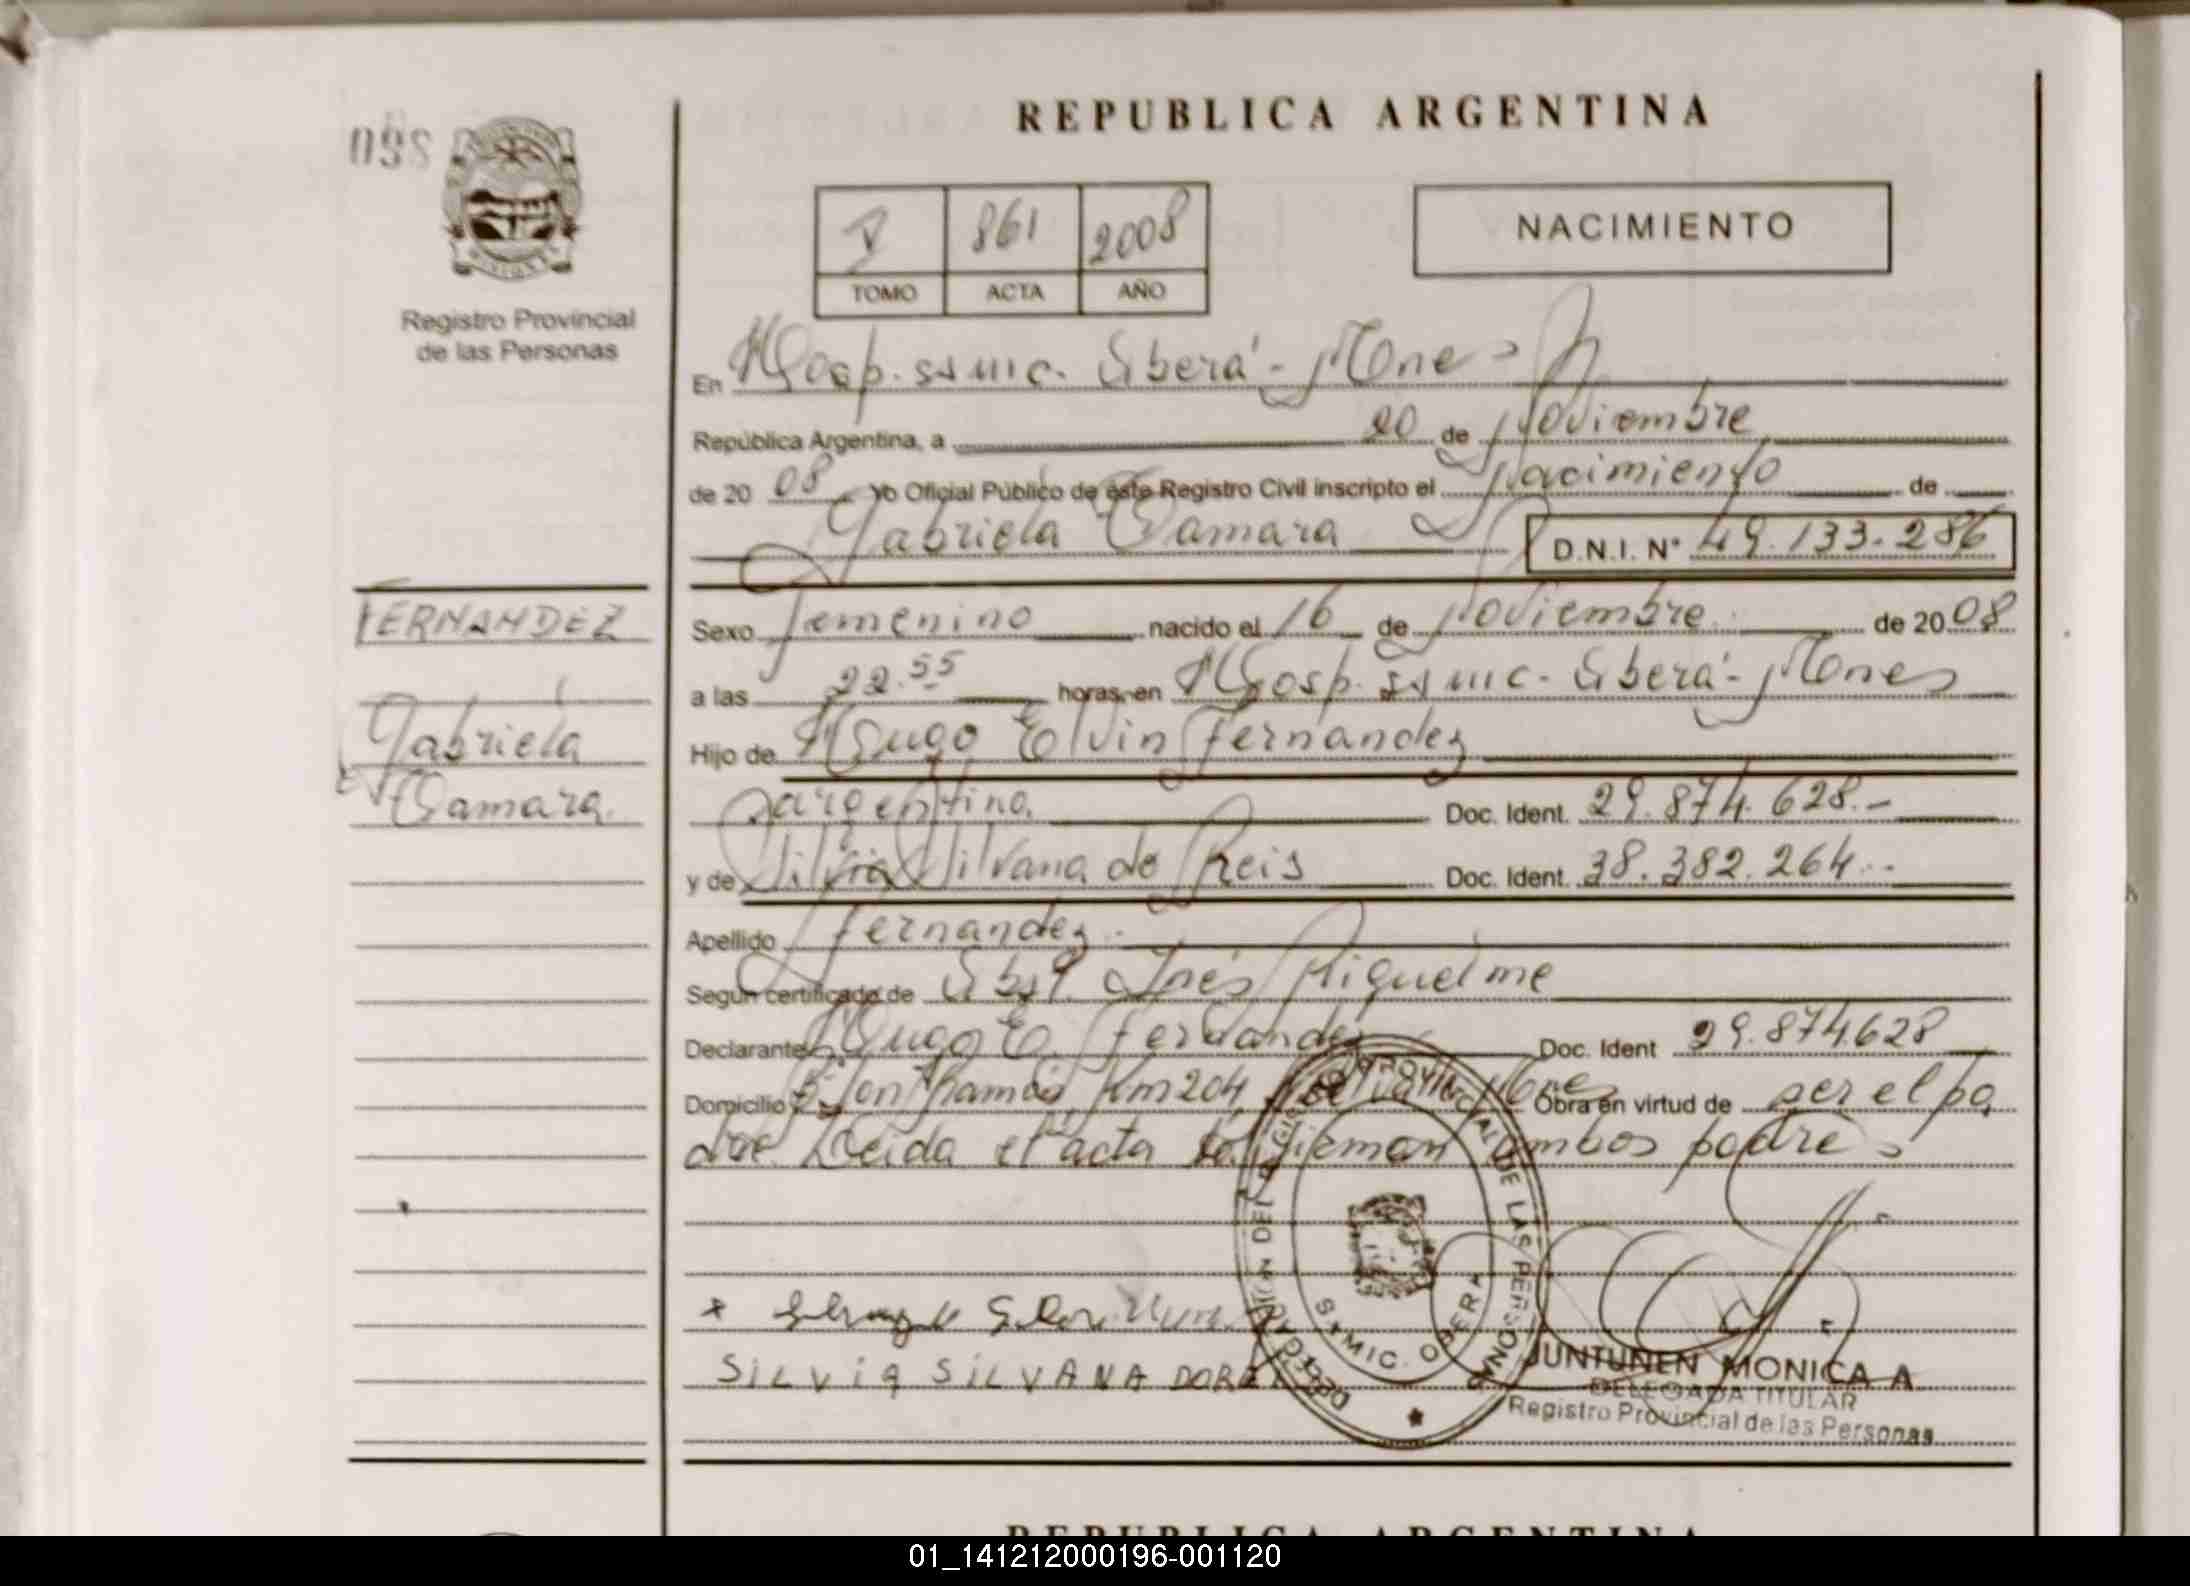 098
REPUBLICA ARGENTINA
V 861 2008
TOMO ACTA AÑO
NACIMIENTO
Registro Provincial
de las Personas
En Hosp. SSMIC. Oberá - Mnes
República Argentina, a 20 de Noviembre
de 2008 Yo Oficial Público de este Registro Civil inscripto el Nacimiento de
Gabriela Tamara D.N.I. N° 49.133.286
FERNANDEZ
Gabriela
Tamara
Sexo Femenino nacido el 16 de Noviembre de 2008
a las 22.55 horas, en Hosp. SSMIC. Oberá - Mnes
Hijo de Hugo Elvin Fernandez
argentino. Doc. Ident. 29.874.628.-
y de Silvia Silvana do Reis Doc. Ident. 38.382.264.-
Apellido Fernandez.
Según certificado de Obst. Inés Riquelme
Declarante Hugo E. Fernandez Doc. Ident 29.874.628
Domicilio Km 204 Mnes Obra en virtud de ser el pa
dre. Leida el acta la firman ambos padres
SILVIA SILVANA DOREI
DELEGACION DEL REGISTRO PROVINCIAL DE LAS PERSONAS
S.MIC. OBERA
JUNTUNEN MONICA A
DELEGADA TITULAR
Registro Provincial de las Personas
REPUBLICA ARGENTINA
01_141212000196-001120